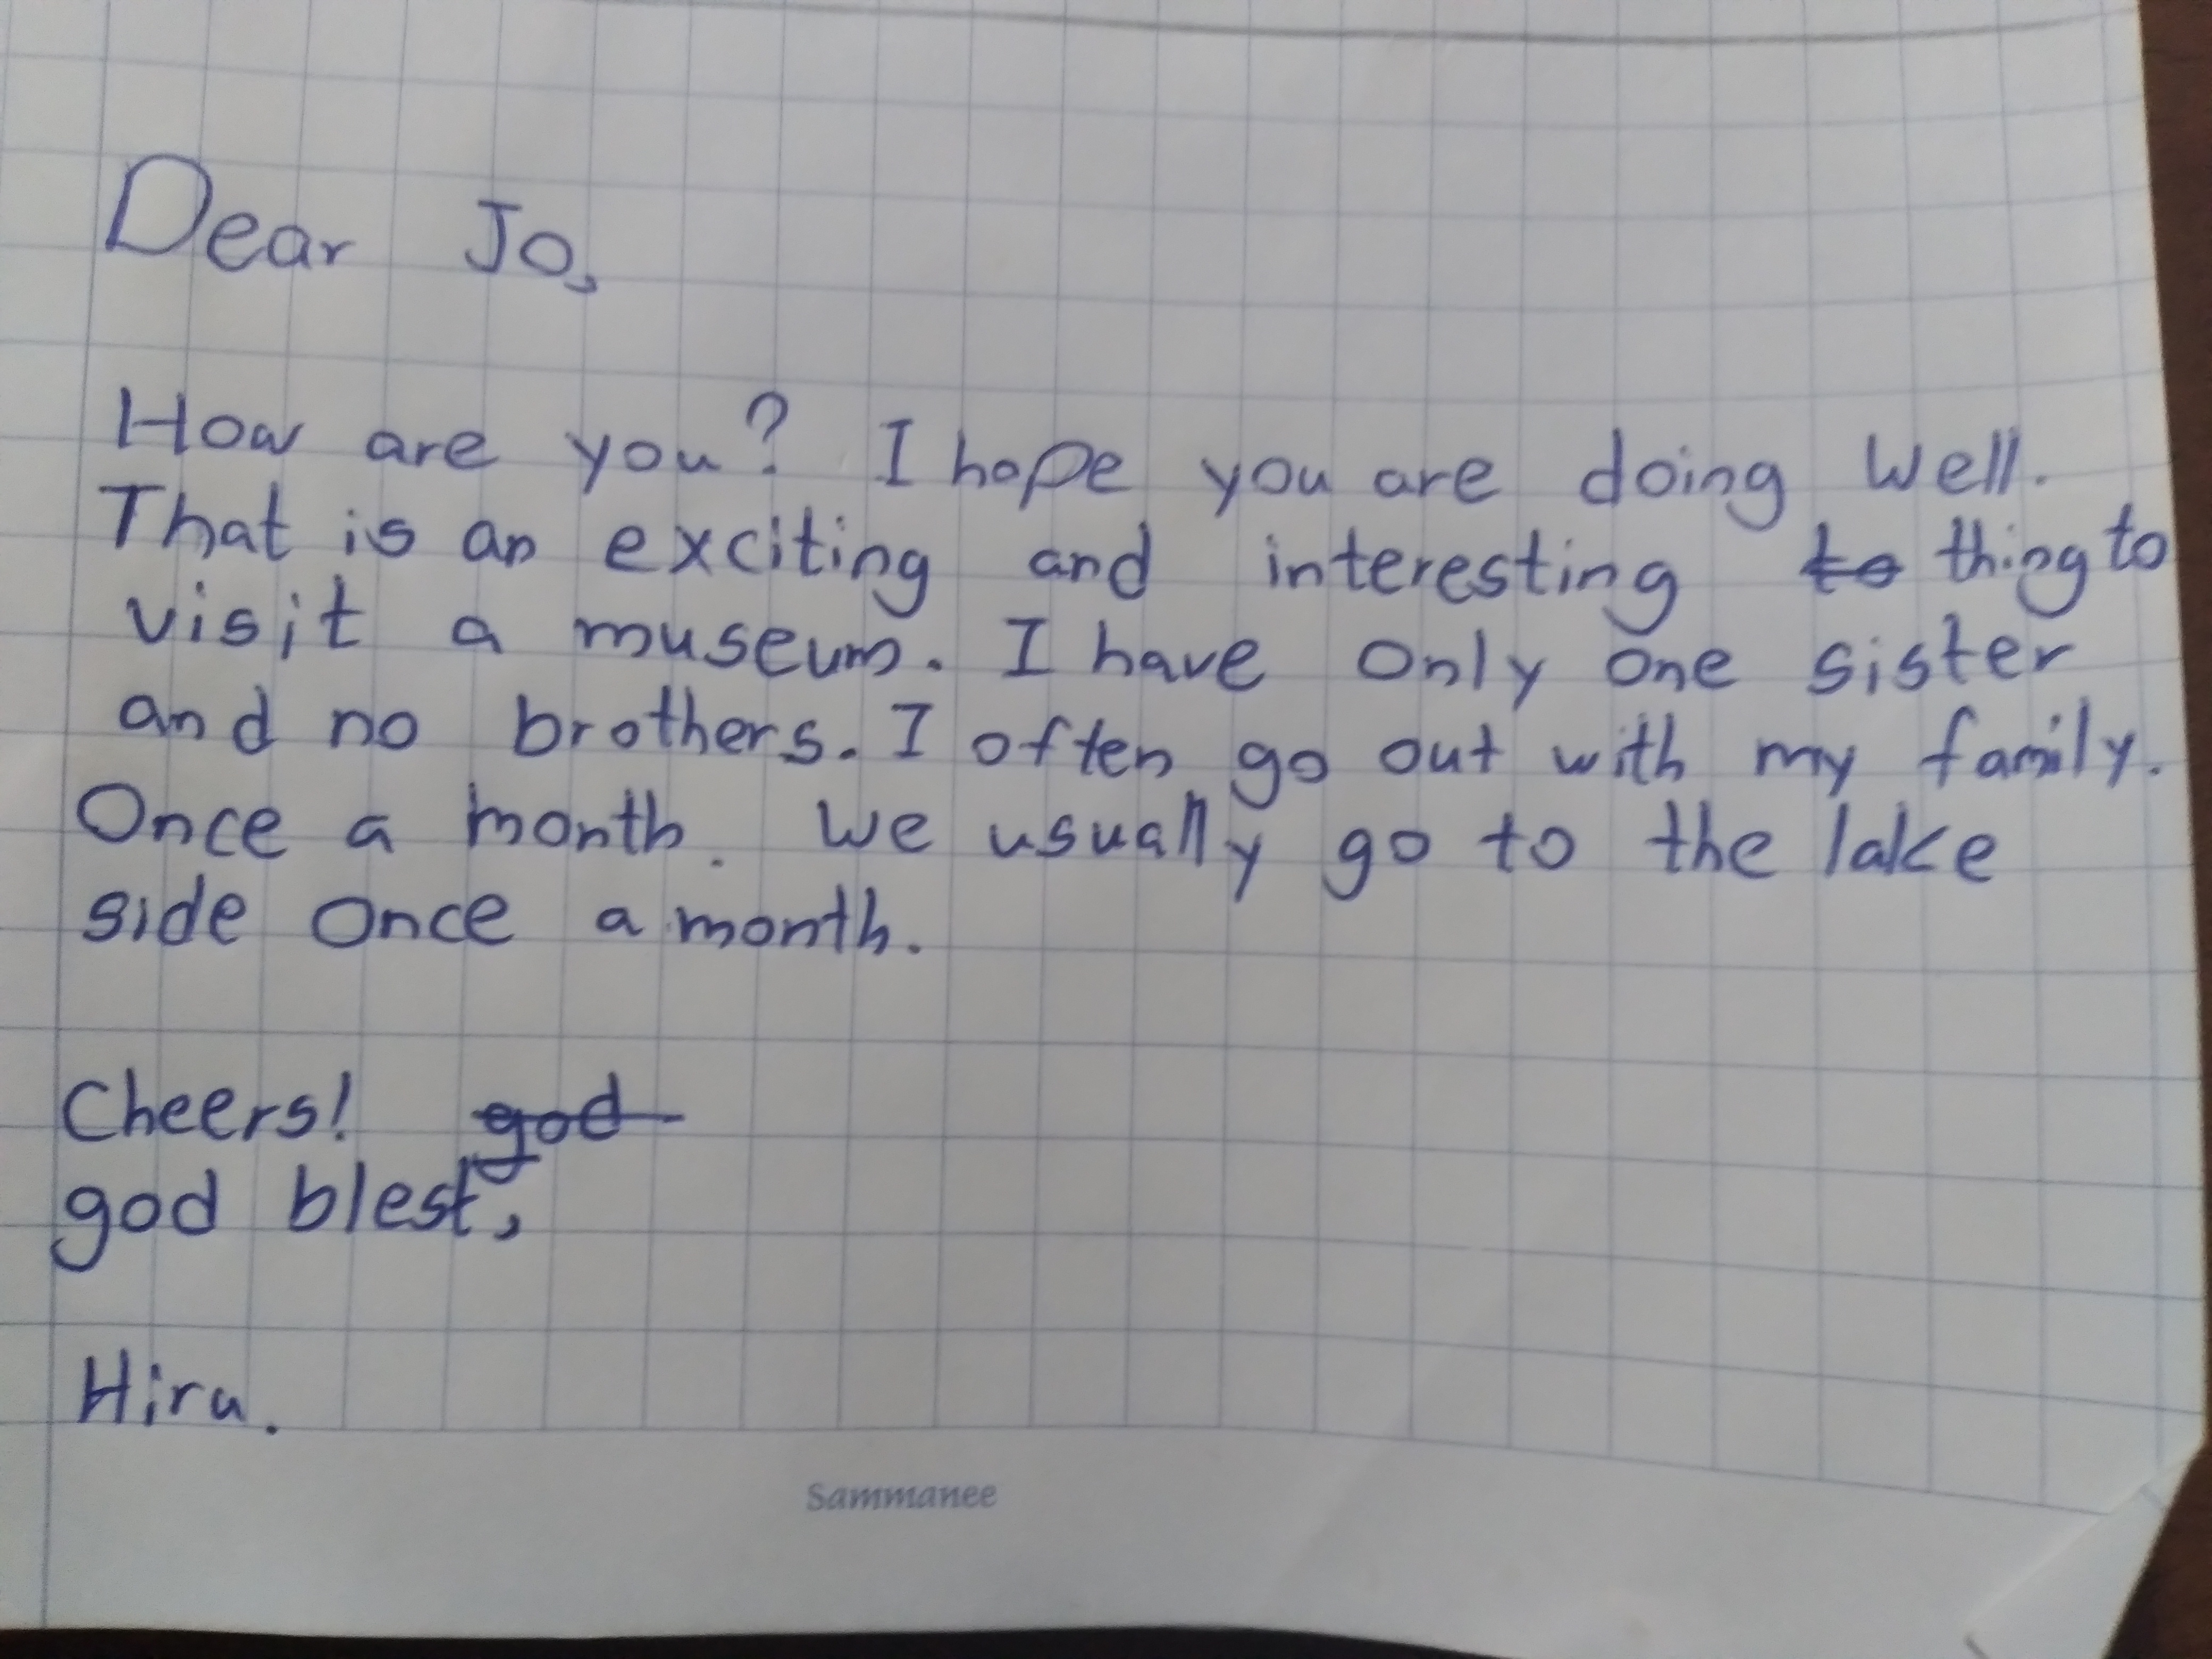 Dear Jo,
How are you? I hope you are doing well.
That is an exciting and interesting to thing to
visit a museum. I have only one sister
and no brothers. I often go out with my family.
Once a month. We usually go to the lake
side once a month.
Cheers! god
god blest,
Hiru.
Sammanee